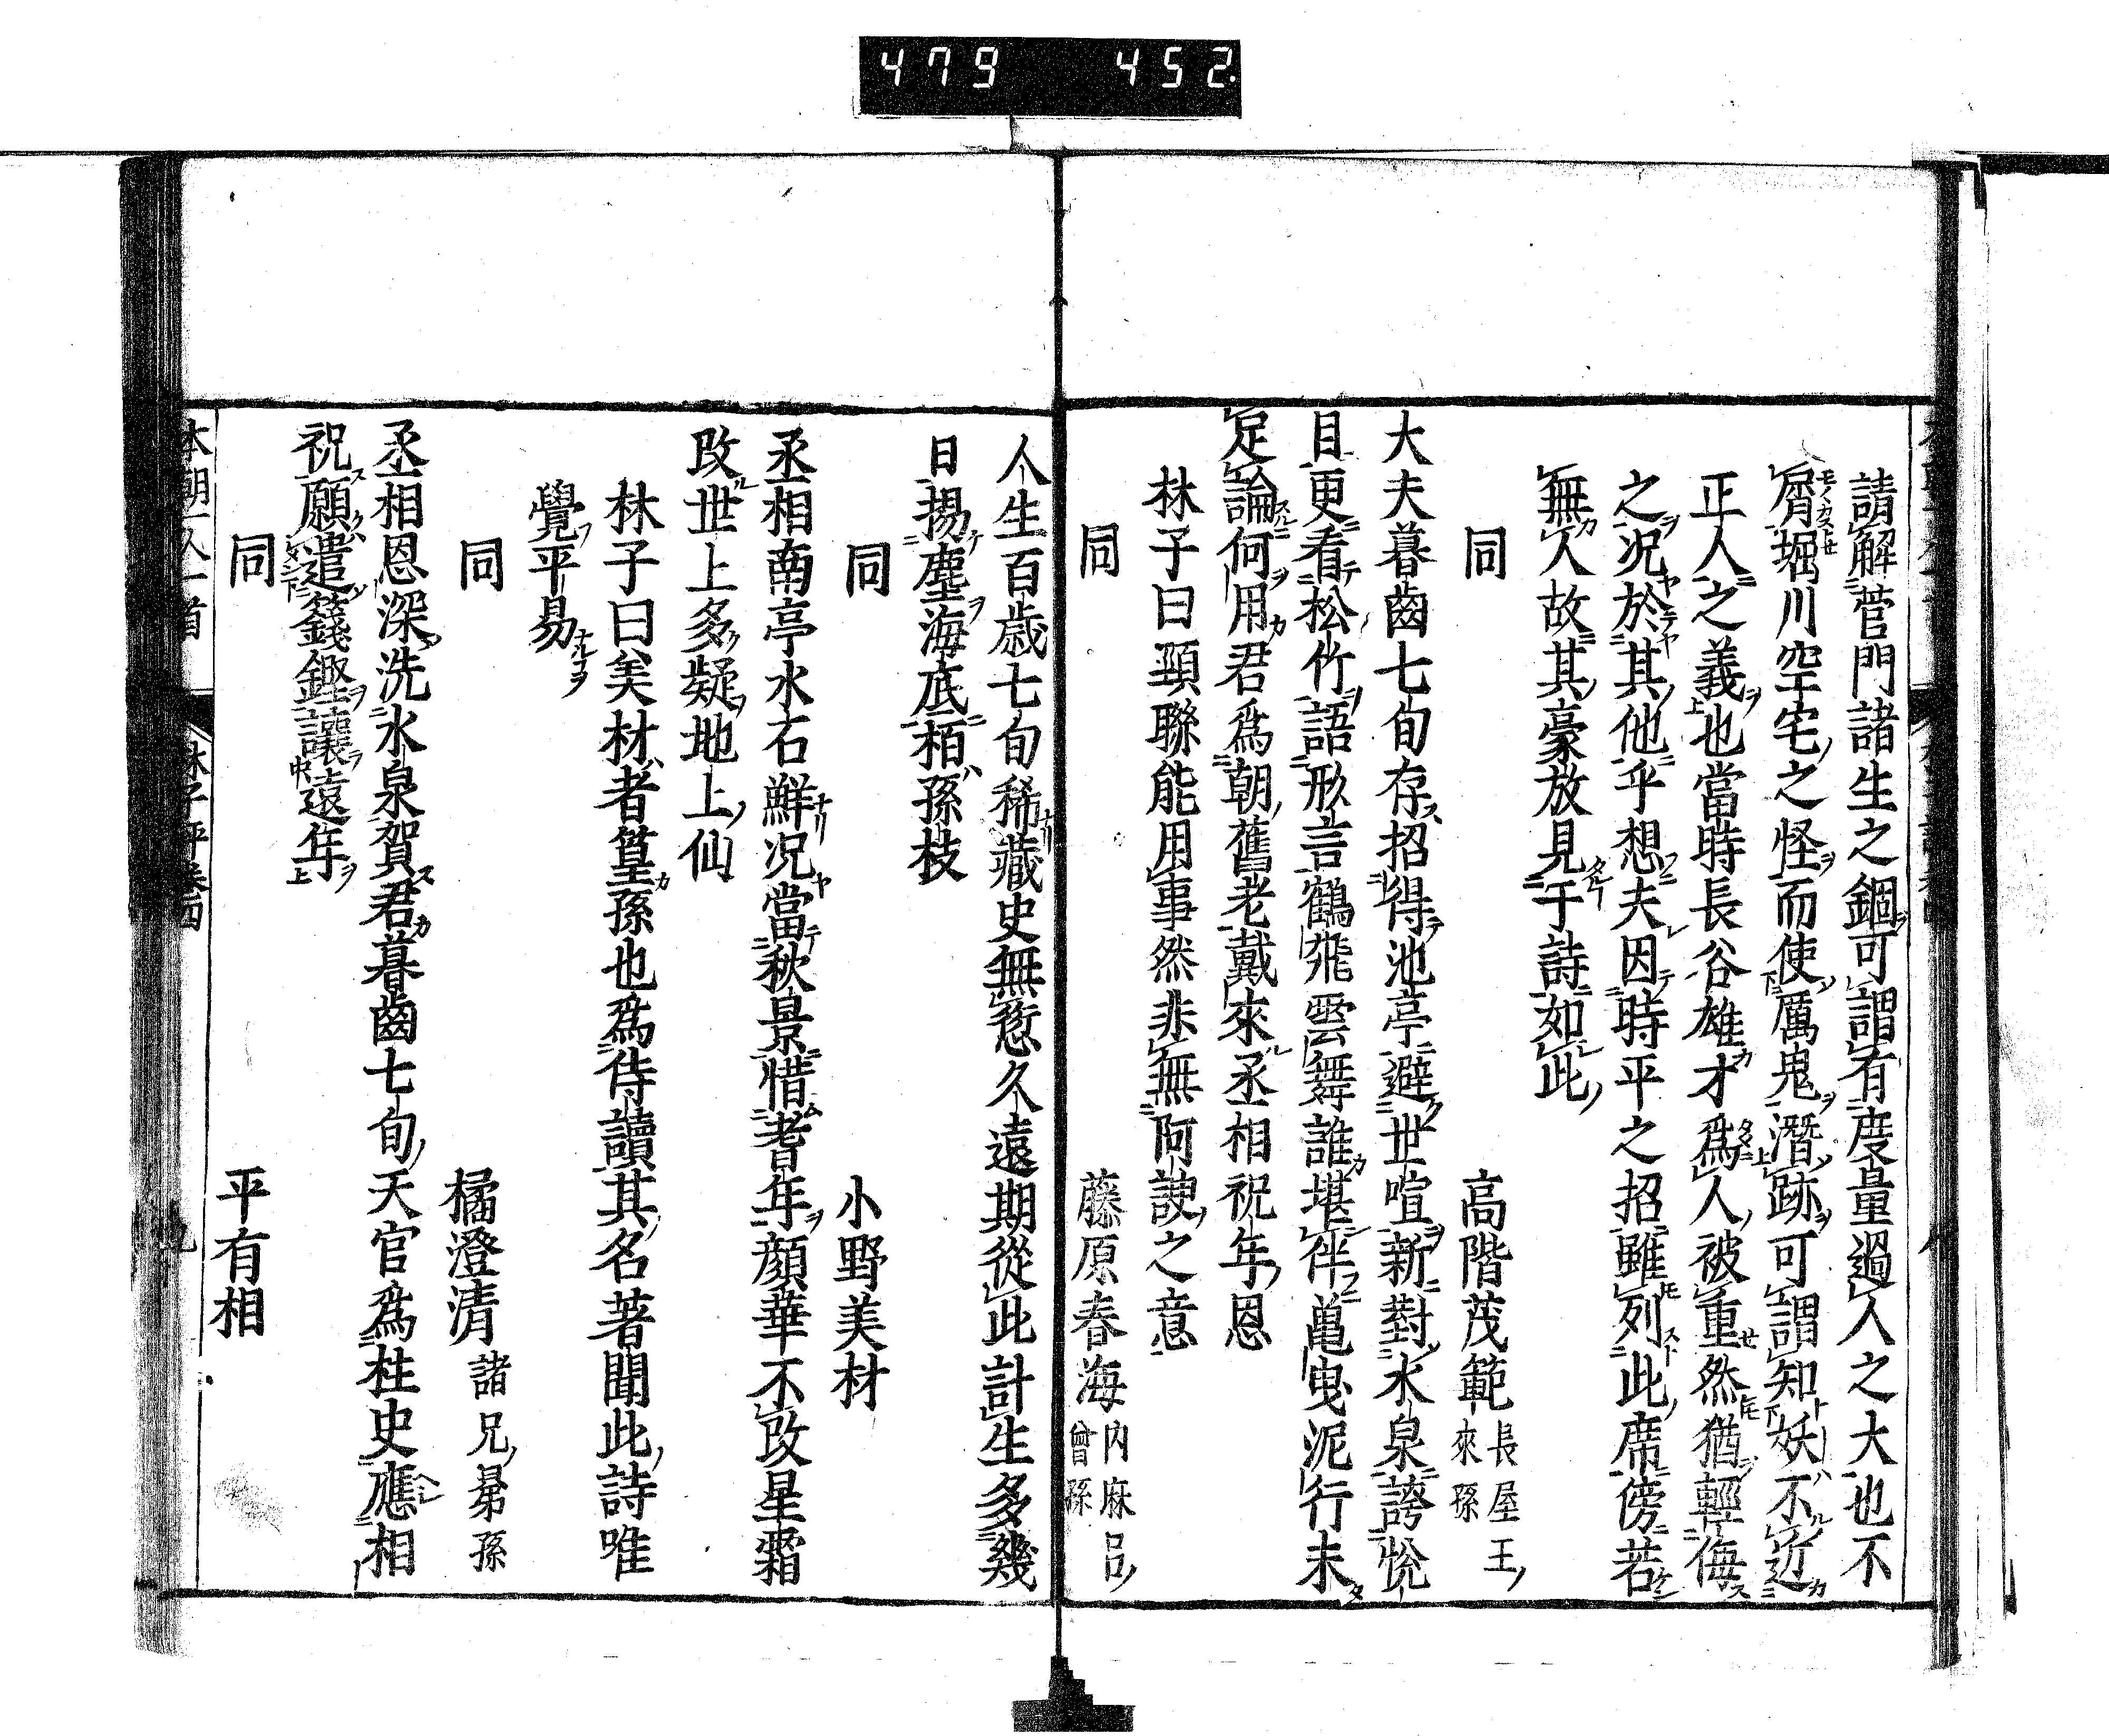 479 452
請解菅門諸生之錮可謂有度量過人之大也不
屑堀川空宅之怪而使厲鬼潛跡可謂知妖不近
正人之義也當時長谷雄才爲人被重然猶輕侮
之况於其他乎想夫因時平之招雖列此席傍若
無人故其豪放見于詩如此
同 高階茂範 長屋王
來孫
大夫暮齒七旬存招得池亭避世喧新對水泉誇恱
目更看松竹語形言鶴飛雲舞誰堪伴亀曳泥行未
足論何用君爲朝舊老戴來丞相祝年恩
林子曰頸聯能用事然非無阿諛之意
同 藤原春海 内麻呂
曾孫
人生百歳七旬稀藏史無愆久遠期從此計生多幾
日揚塵海底栢孫枝
同 小野美材
丞相南亭水石鮮况當秋景惜耆年顔華不改星霜
改世上多疑地上仙
林子曰美材者篁孫也爲侍讀其名著聞此詩唯
覺平易
同 橘澄清 諸兄昴孫
丞相恩深洗水泉賀君暮齒七旬天官爲柱史應相
祝願遣籛鏗讓遠年
同 平有相
本朝一人一首 林子評卷四 九